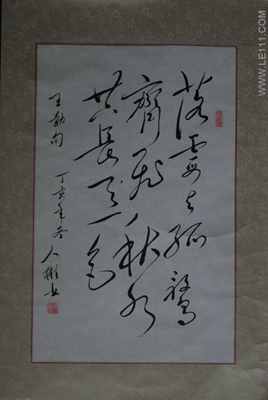 落霞与孤鹜
齐飞秋水
共长天一色
王勃句
丁亥年冬
人彬书
WWW.LE111.COM